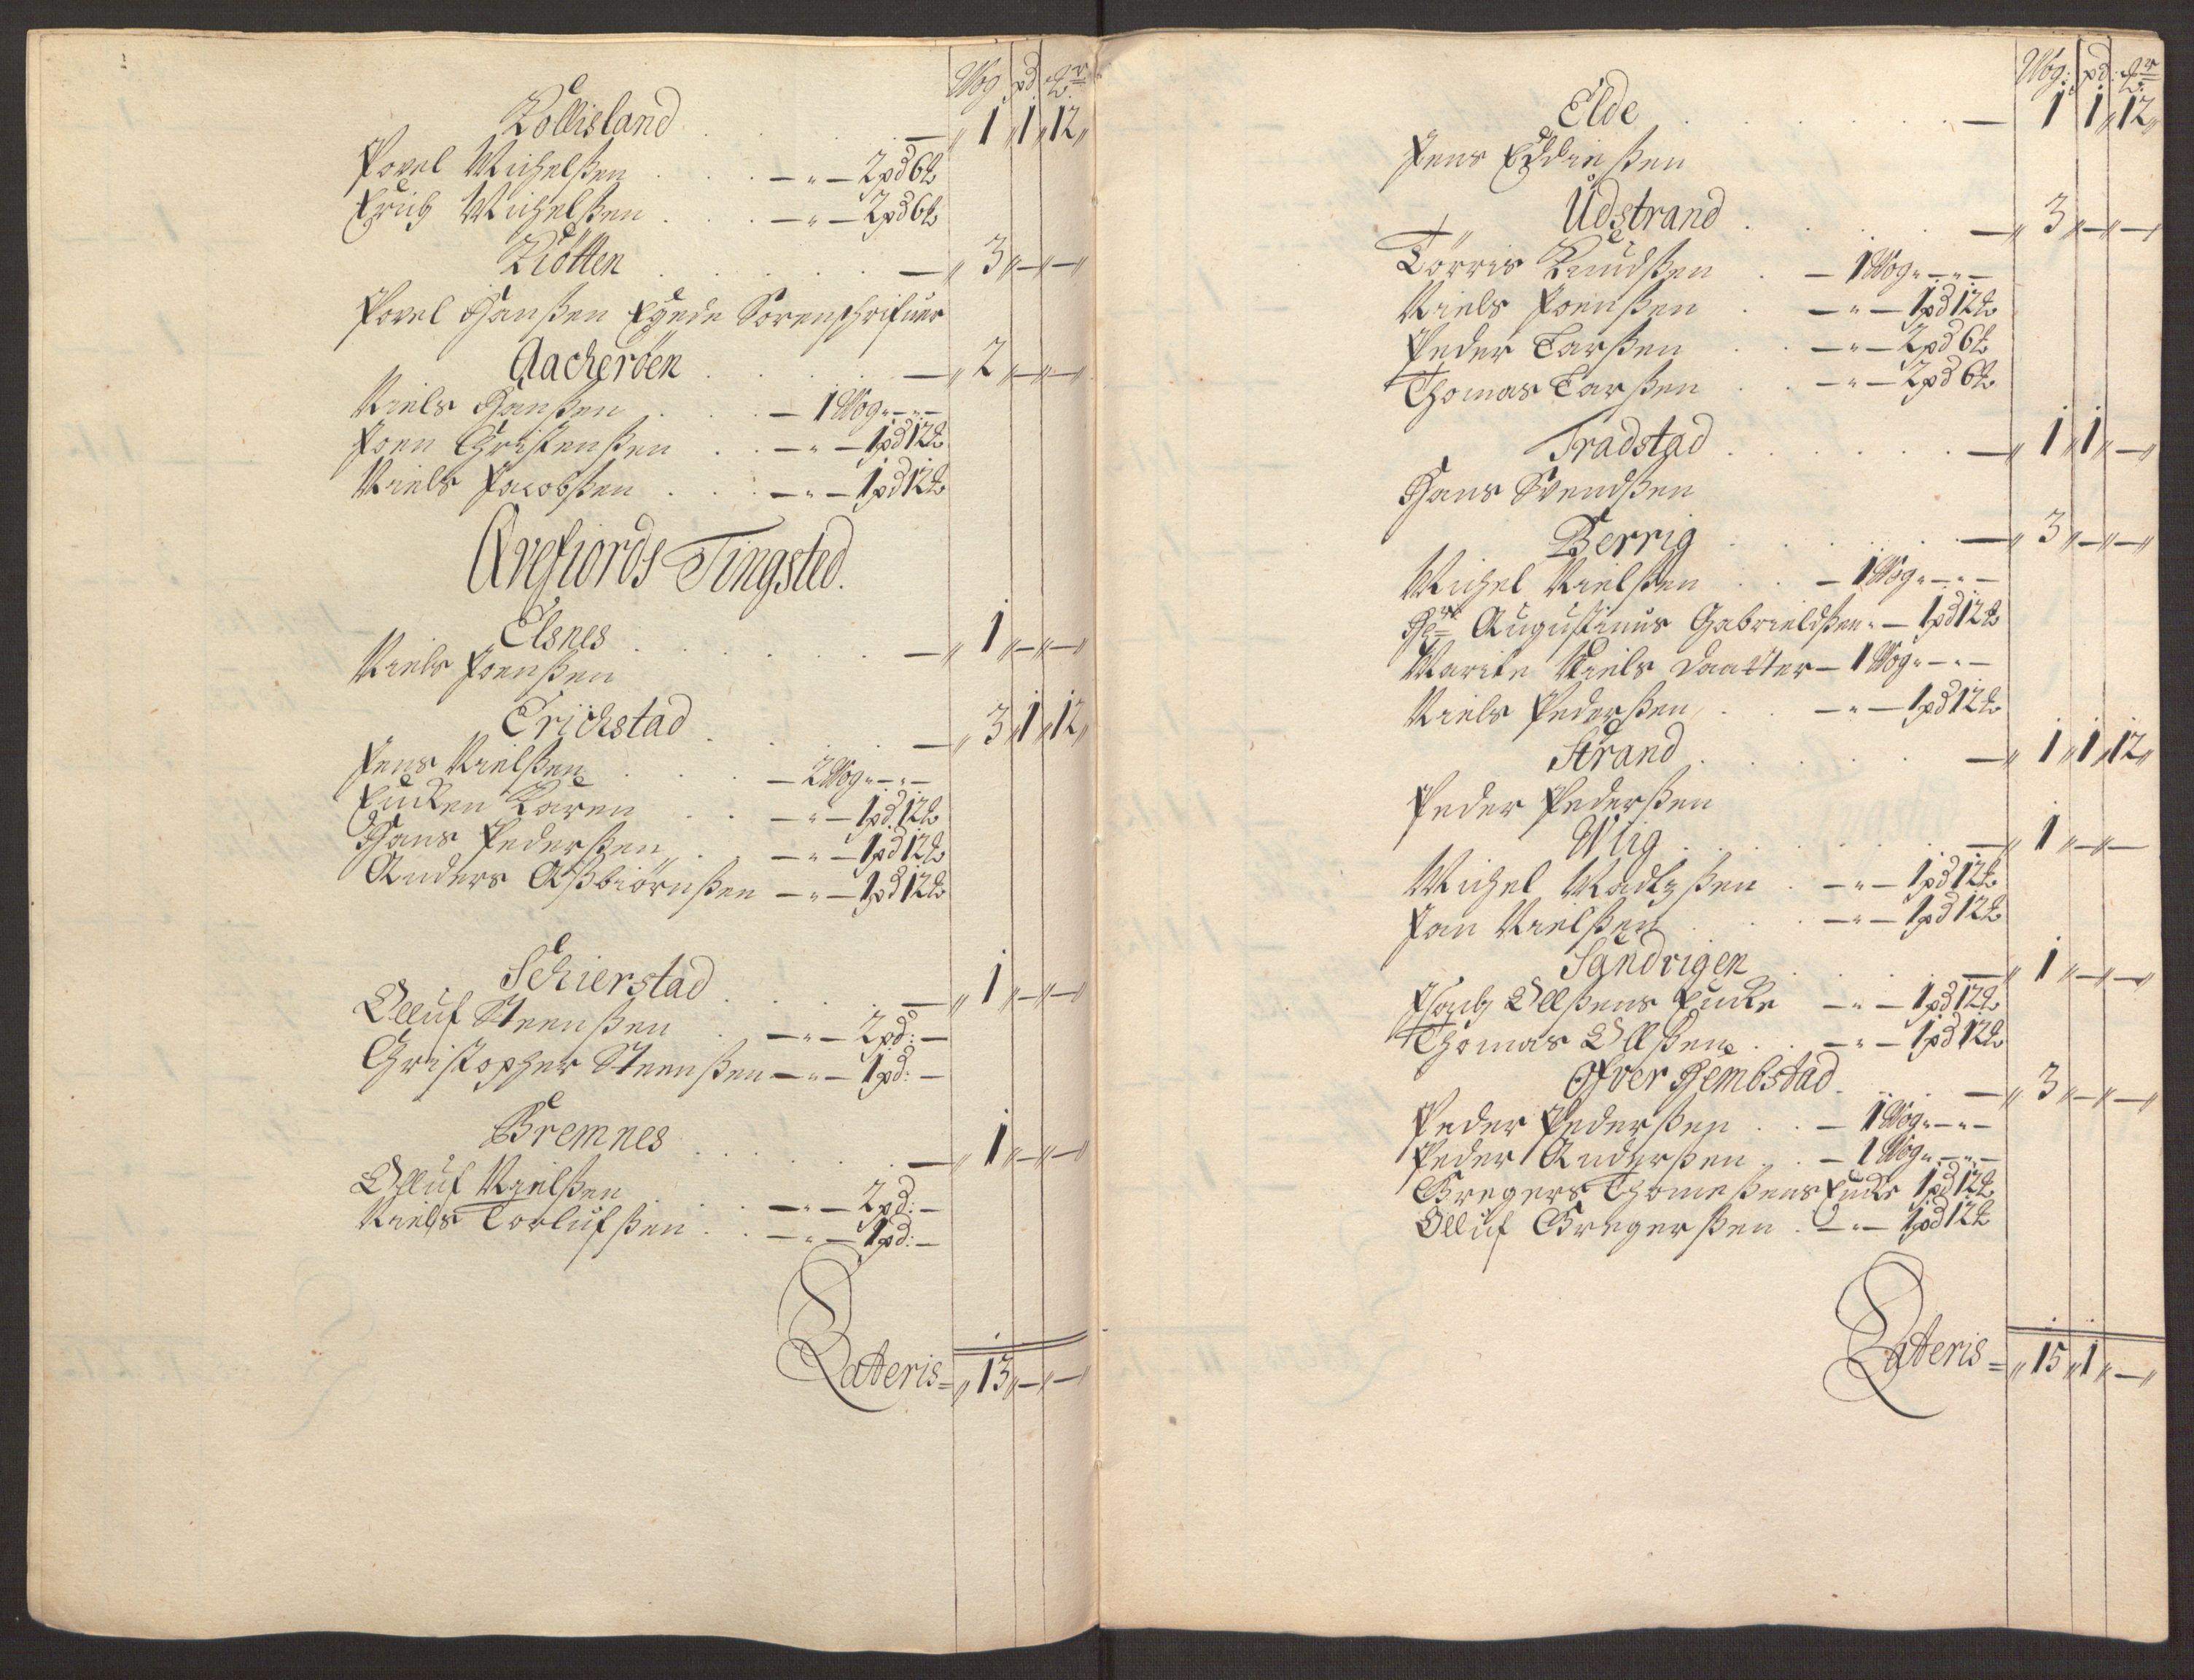 Wog pd
Kollisland — 1 1 12
Povel Michelßen — 2pd 6
Erich Michelßen — 2pd 6
Kiötten — 3 — —
Povel Hanßen Egede Sorenschrifuer
Aacherøen — 2 — —
Niels Hanßen — 1 Wog — —
Joen Christenßen — 1pd 12
Niels Jacobßen — 1pd 12
Qvefiords Tingsted.
Elsnes — 1 — —
Niels Joenßen
Erichstad — 3 1 12
Jens Nielßen — 2 Wog — —
Encken Karen — 1pd 12
Hans Pederßen — 1pd 12
Anders Aßbiörnßen — 1pd 12
Schierstad — 1 — —
Olluf Steenßen — 2pd: —
Christopher Steenßen — 1pd: —
Bremnes — 1 — —
Olluf Nielßen — 2pd: —
Niels Torlufßen — 1pd: —
Lateris = 13 — —
Wog: pd:
Elde — 1 1 12
Jens
Udstrand — 3 — —
Törris Knudßen — 1 Wog — —
Niels Joenßen — 1pd 12
Peder Larßen — 2pd 6
Thomas Larßen — 2pd 6
Tradstad — 1 1 —
Hans Svendßen
Berrig — 3 — —
Michel Nielßen — 1 Wog — —
Hr Augustinus Gabrieldßen — 1pd 12
Marite Niels Daatter — 1 Wog — —
Niels Pederßen — 1pd 12
Strand — 1 1 12
Peder Pederßen
Wiig — 1 — —
Michel Madtzßen — 1pd 12
Jon Nielßen — 1pd 12
Sandvigen — 1 — —
Isach Ollßens Encke — 1pd 12
Thomas Ollßen — 1pd 12
Ofver Hembstad — 3 — —
Peder Pederßen — 1 Wog — —
Peder Anderßen — 1 Wog — —
Gregers Thomeßens Encke 1pd 12
Olluf Gregerßen — 1pd 12
Lateris = 15 1 —